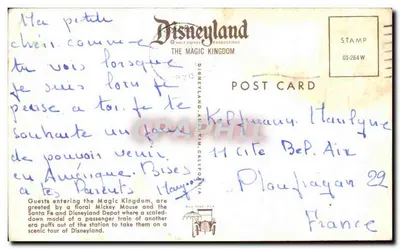 Disneyland
THE MAGIC KINGDOM
STAMP
POST CARD
Ma petite
chérie comme
tu vois lorsque
je suis loin je
pense a toi. je te
souhaite un jour
de pouvoir venir
en Amérique. Bises
a tes Parents
Guests entering the Magic Kingdom, are
greeted by a floral Mickey Mouse and the
Santa Fe and Disneyland Depot where a scaled-
down model of a passenger train of another
era puffs out of the station to take them on a
scenic tour of Disneyland.
11 Cité Bel. Air
Ploufragan 22
France